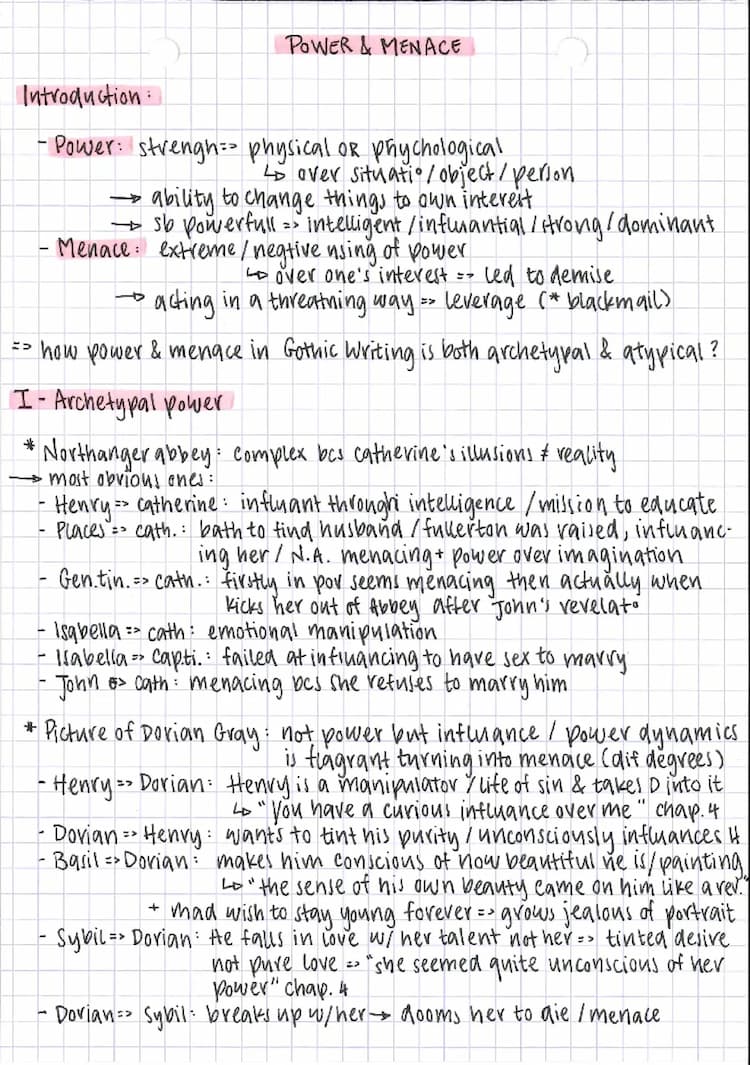 POWER & MENACE
Introduction :
- Power : strengh => physical OR phychological
↳ over situat°/object/person
→ ability to change things to own interest
→ sb powerfull => intelligent /influantial/strong/dominant
- Menace : extreme/negtive using of power
↳ over one's interest => led to demise
→ acting in a threatning way => leverage (* blackmail)
=> how power & menace in Gothic Writing is both archetypal & atypical ?
I - Archetypal power
* Northanger abbey : complex bcs catherine's illusions ≠ reality
→ most obvious ones :
- Henry => catherine : influant through intelligence /mission to educate
- Places => cath. : bath to find husband /fullerton was raised, influanc-
ing her / N.A. menacing + power over imagination
- Gen.tin. => cath. : firstly in pov seems menacing then actually when
kicks her out of Abbey after John's revelat°
- Isabella => cath : emotional manipulation
- Isabella => capti. : failed at influancing to have sex to marry
- John => cath : menacing bcs she refuses to marry him
* Picture of Dorian Gray : not power but influance / power dynamics
is flagrant turning into menace (dif degrees)
- Henry => Dorian : Henry is a manipulator /life of sin & takes D into it
↳ "you have a curious influence over me" chap. 4
- Dorian => Henry : wants to tint his purity / unconsciously influances H
- Basil => Dorian : makes him conscious of how beautiful he is/painting
↳ "the sense of his own beauty came on him like a rev."
+ mad wish to stay young forever => grows jealous of portrait
- Sybil => Dorian : He falls in love w/ her talent not her => tinted desire
not pure love => "she seemed quite unconscious of her
power" chap. 4
- Dorian => Sybil : breaks up w/her → dooms her to die /menace